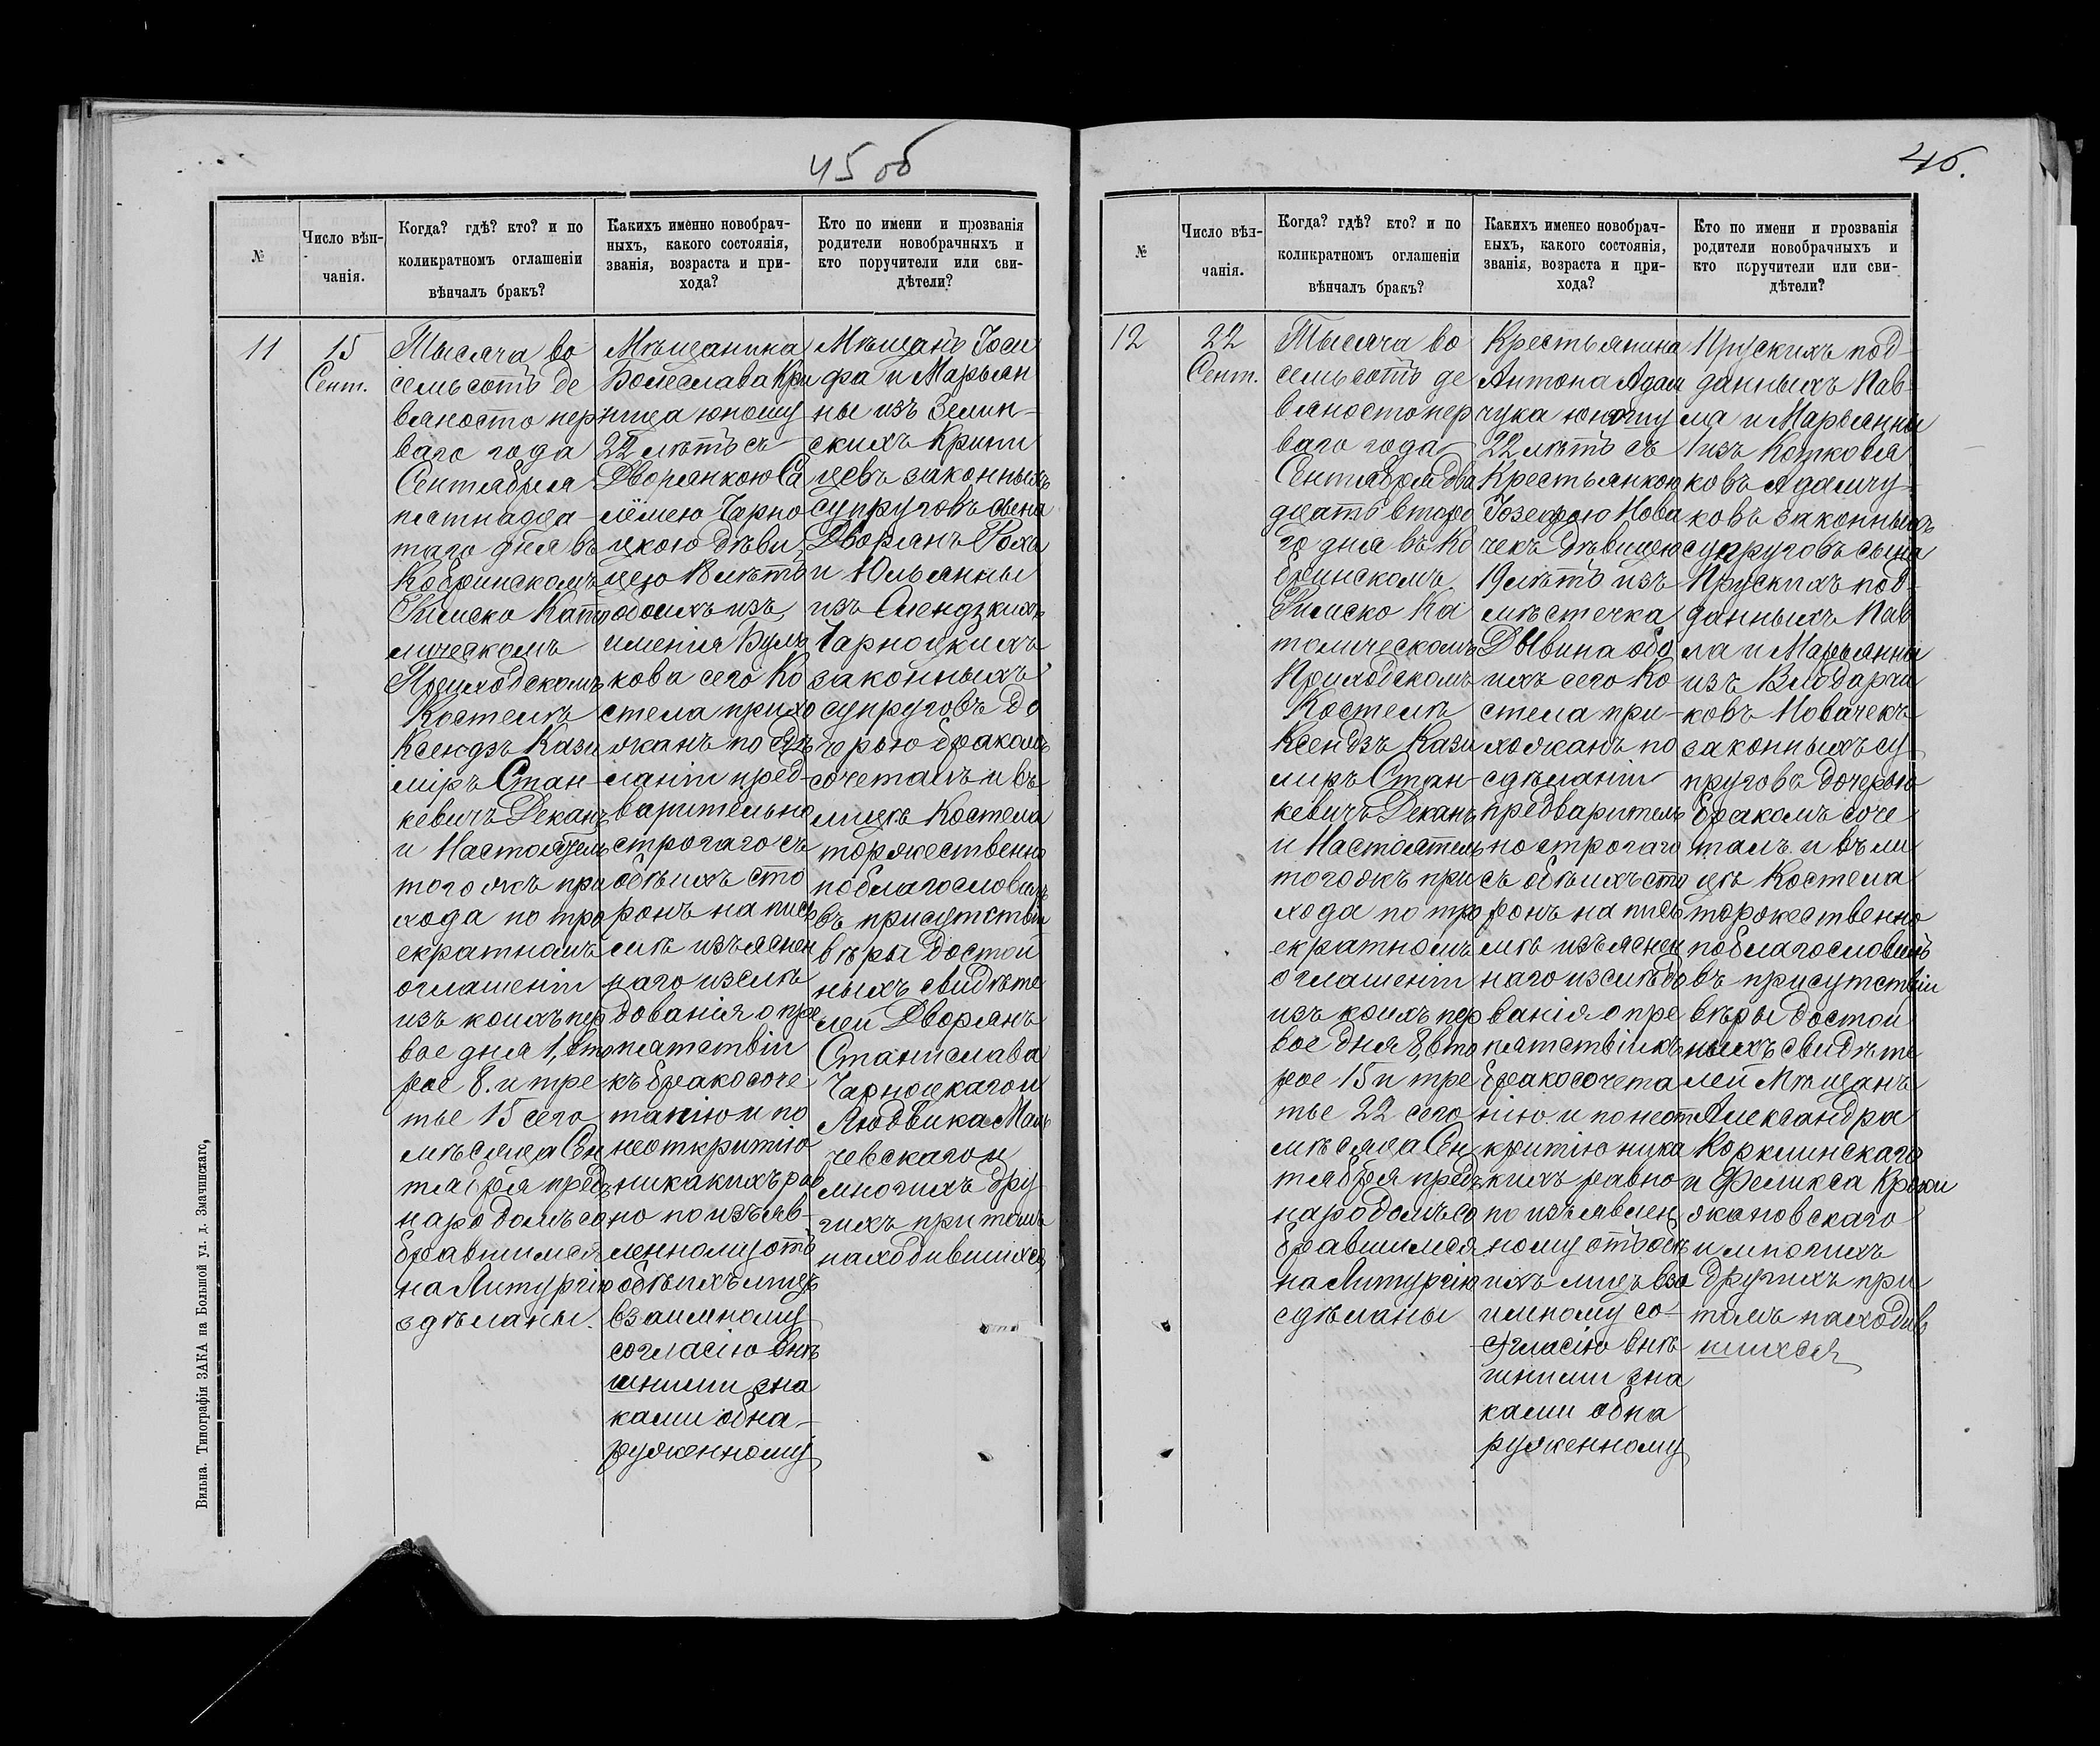 45 об
№
Число вѣн-
чанія.
Когда? гдѣ? кто? и по
коликратномъ оглашеніи
вѣнчалъ бракъ?
Какихъ именно новобрач-
ныхъ, какого состоянія,
званія, возраста и при-
хода?
Кто по имени и прозванія
родители новобрачныхъ и
кто поручители или сви-
дѣтели?
11
15
Сент.
Тысяча во
семьсотъ де
вяносто пер
ваго года
Сентября
пятнадца-
таго дня въ
Кобринскомъ
Римско Като
лическомъ
Приходскомъ
Костелѣ
Ксендзъ Кази
міръ Стан-
кевичъ Деканъ
и Настоятель
того жъ при
хода по тро
екратномъ
оглашеніи
изъ коихъ пер
вое дня 1, вто
рое 8. и тре
тье 15 сего
мѣсяца Сен
тября предъ
народомъ со
бравшимся
на Литургію
здѣланы.
Мѣщанина
Болеслава Кри
ница юношу
22 лѣтъ съ
Дворянкою Са
лёмею Чарно
цкою дѣви
цею 18 лѣтъ
обоихъ изъ
имѣнія Буль
кова сего Ко
стела прихо
жанъ по сдѣ
ланіи пред-
варительно
строгаго съ
обѣихъ сто
ронъ на пись
мѣ изъяснен
наго изслѣ
дованія о пре
пятствіи
къ бракосоче
танію и по
неоткритію
никакихъ рав
но по изъяв-
ленному отъ
обѣихъ лицъ
взаимному
согласію внѣ
шними зна
ками обна-
руженному
Мѣщанъ Іоси
фа и Марьян
ны изъ Зелин-
скихъ Крини
цевъ законныхъ
супруговъ сына
Дворянъ Роха
и Юльянны
изъ Олендзкихъ
Чарноцкихъ
законныхъ
супруговъ до
черью бракомъ
сочеталъ и въ
лицѣ Костела
торжественно
поблагословилъ
въ присутствіи
вѣры достой
ныхъ свидѣте
лей Дворянъ
Станислава
Чарноцкаго и
Людвика Маль
чевскаго и
многихъ дру
гихъ при томъ
находившихся
Вильна. Типографія ЗАКА на Большой ул. д. Змачинскаго,
46.
№
Число вѣн-
чанія.
Когда? гдѣ? кто? и по
коликратномъ оглашеніи
вѣнчалъ бракъ?
Какихъ именно новобрач-
ныхъ, какого состоянія,
званія, возраста и при-
хода?
Кто по имени и прозванія
родители новобрачныхъ и
кто поручители или сви-
дѣтели?
12
22
Сент.
Тысяча во
семьсотъ де
вяносто пер
ваго года
Сентября два
дцать второ
го дня въ Ко
бринскомъ
Римско Ка
толическомъ
Приходскомъ
Костелѣ
Ксендзъ Кази
міръ Стан-
кевичъ Деканъ
и Настоятель
того жъ при
хода по тро
екратномъ
оглашеніи
изъ коихъ пер
вое дня 8, вто
рое 15 и тре
тье 22 сего
мѣсяца Сен
тября предъ
народомъ со
бравшимся
на Литургію
сдѣланы
Крестьянина
Антона Адам
чука юношу
22 лѣтъ съ
Крестьянкою
Іозефою Нова
чекъ дѣвицею
19 лѣтъ изъ
мѣстечка
Дывина обо
ихъ сего Ко
стела при-
хожанъ по
сдѣланіи
предваритель
но строгаго
съ обѣихъ сто
ронъ на пись
мѣ изъяснен
наго изслѣдо
ванія о пре
пятствіи къ
бракосочета
нію и по неот
критію ника
кихъ равно
по изъявлен
ному отъ обѣ
ихъ лицъ вза
имному со-
гласію внѣ
шними зна
ками обна
руженному
Прускихъ под-
данныхъ Пав-
ла и Марьянны
изъ Котковя
ковъ Адамчу-
ковъ законныхъ
супруговъ сына
Прускихъ под-
данныхъ Пав
ла и Марьянны
изъ Влодарчи
ковъ Новачекъ
законныхъ су
пруговъ дочерью
бракомъ соче
талъ и въ ли
цѣ Костела
торжественно
поблагословилъ
въ присутствіи
вѣры достой
ныхъ свидѣте
лей Мѣщанъ
Александра
Коркминскаго
и Феликса Кржи
жановскаго
и многихъ
другихъ при
томъ находив
шихся